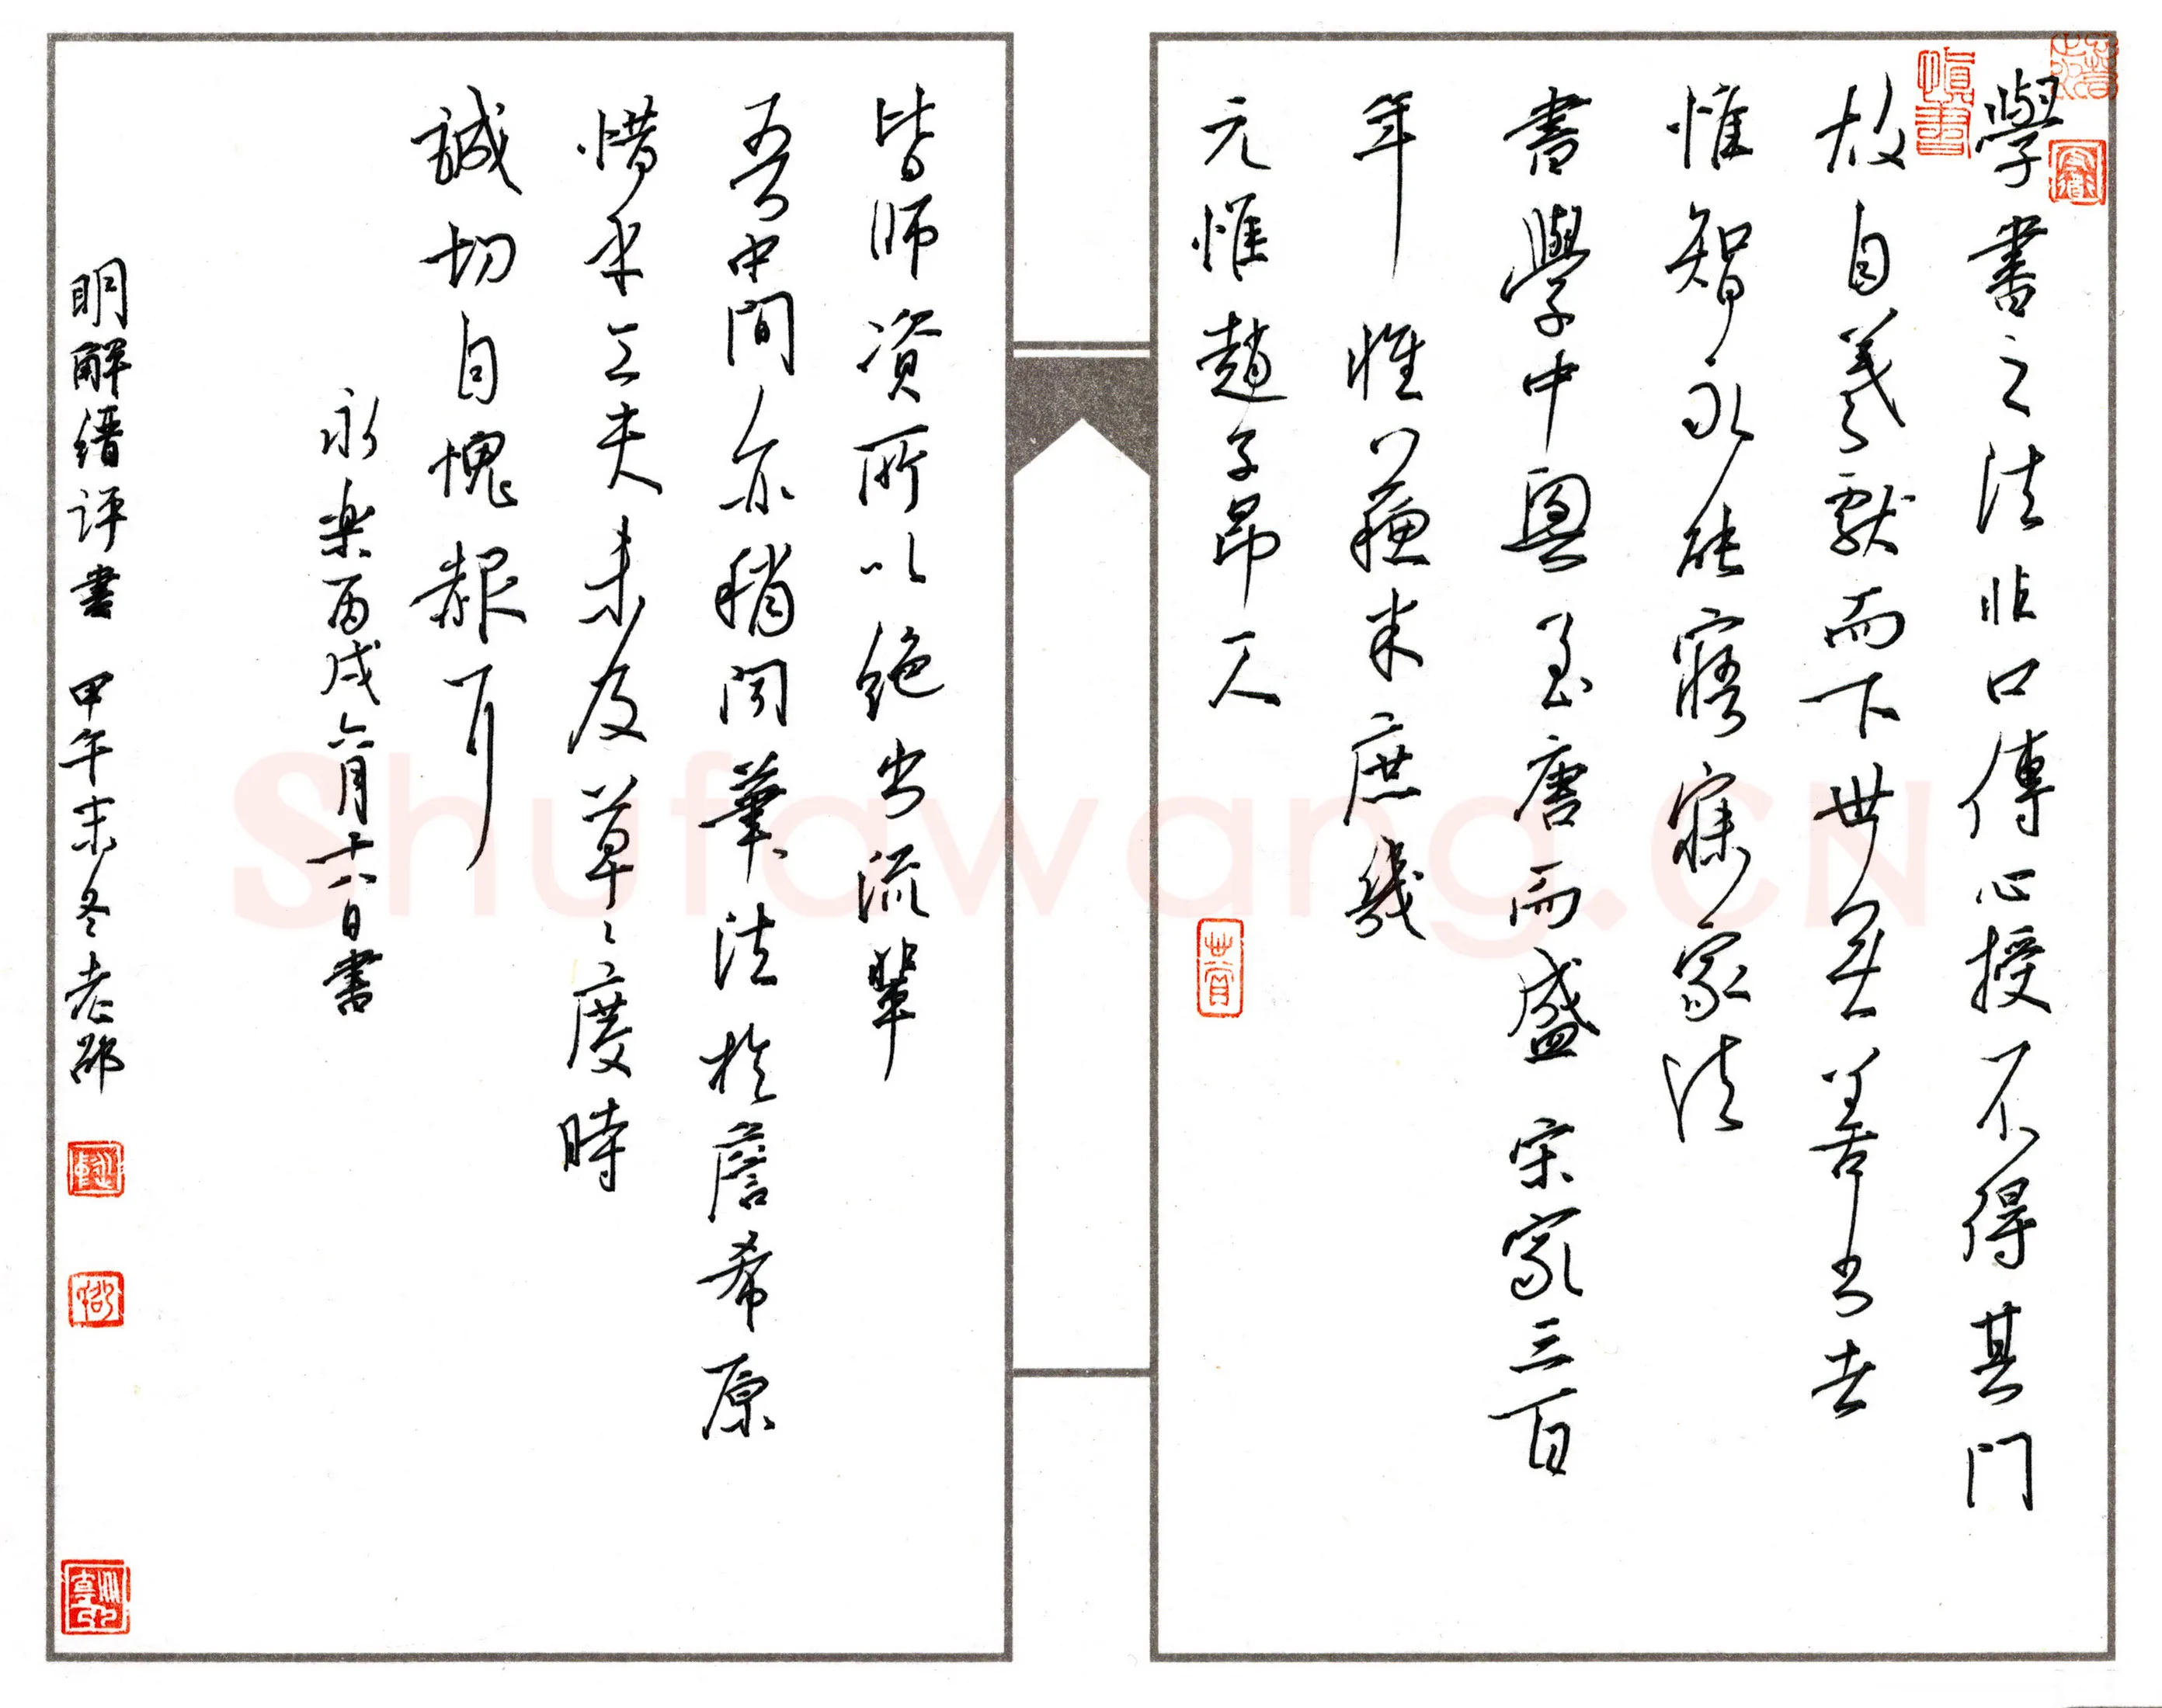 學書之法非口傳心授不得其門
故自羲獻而下世無善書者
惟智永能寤寐家法
書學中興至唐而盛宋家三百
年惟蘇米庶幾
元惟趙子昂一人
皆師資所以絕出流輩
吾中間亦稍聞筆法於詹希原
惜乎工夫未及草〻度時
誠切自愧赧耳
永樂丙戌六月十八日書
明解縉評書 甲午末冬老邵
Shufawang.CN